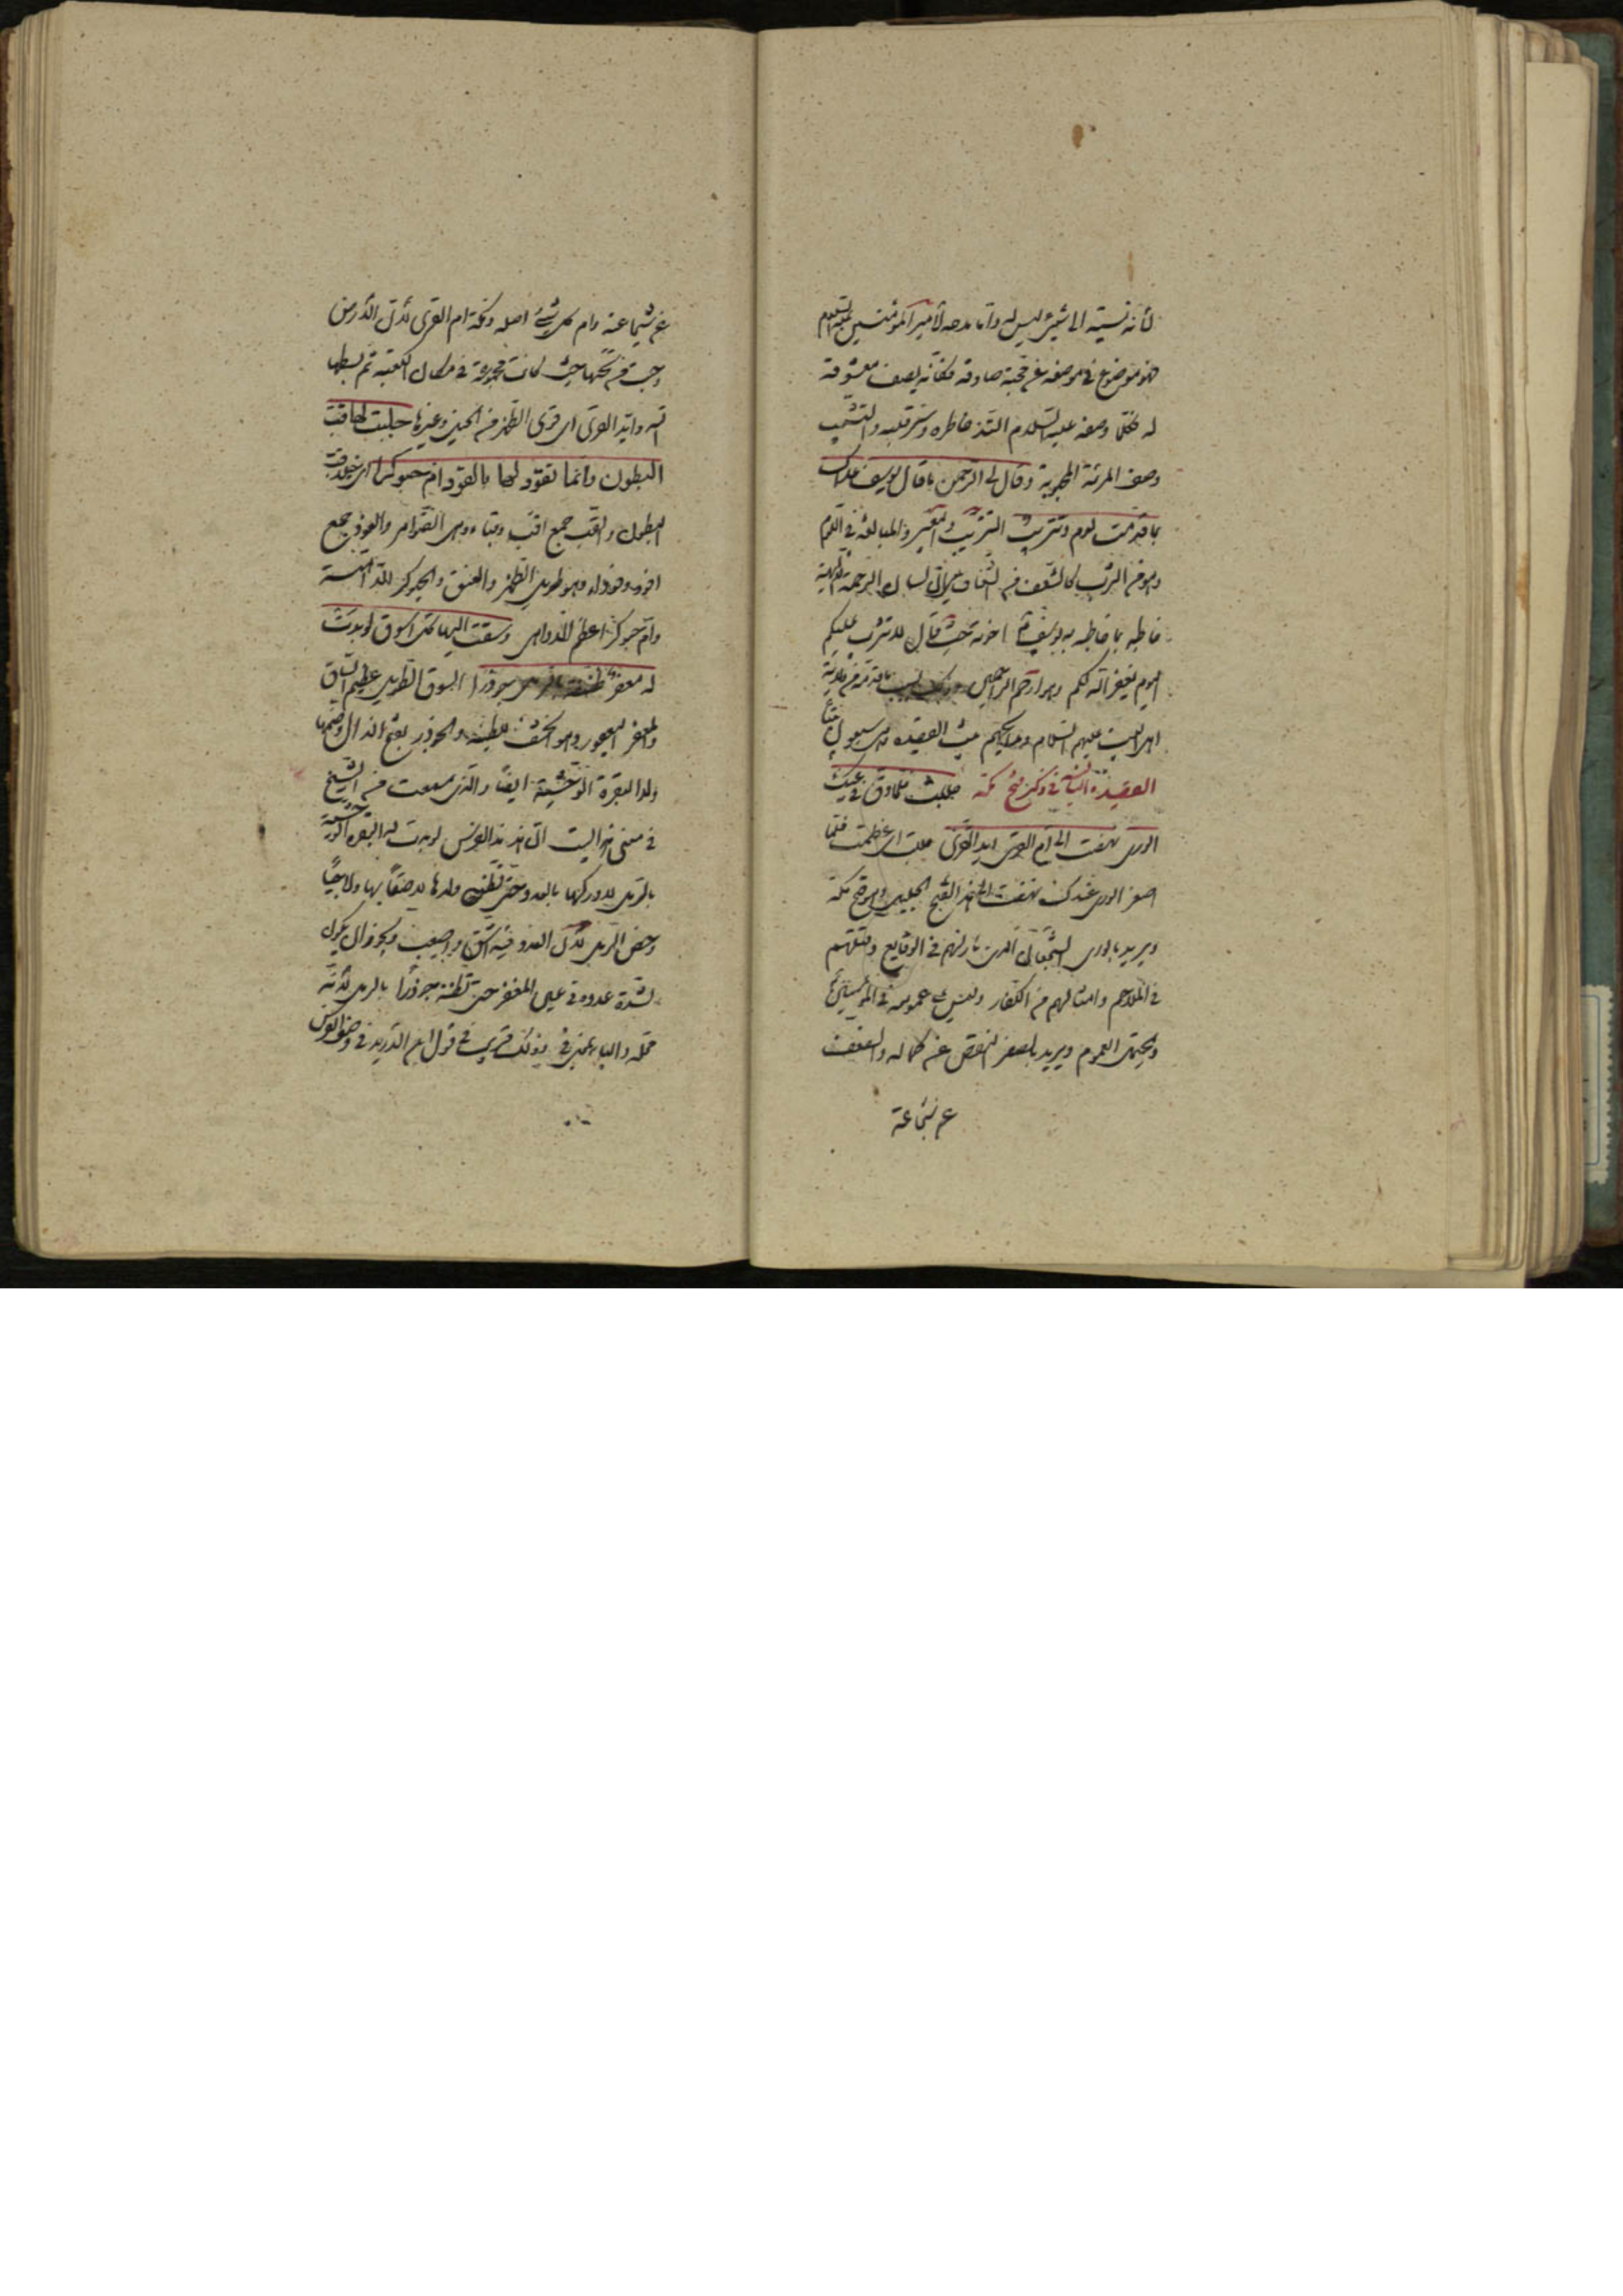 لأنه نسبته الى شيئ ليس له وأما مدحه لأمير المؤمنين عليه السلام
فهو موضوع في موضعه عن محبة صادقة فكأنه يصف معشوقة
له فكلما وصفه عليه السلام التذ خاطره وسر قلبه والتشبيب
وصف المرئة المحبوبة وقال لي الرحمن ما قال يوسف علاك
بما قدمت لوم وتثريب التثريب التعيير والمبالغة في اللوم
وهو من الثرب كالشغف من الشغاف لسان الرحمة الالهية
خاطبه بما خاطب به يوسف اخوته حيث قال لا تثريب عليكم
اليوم يغفر الله لكم وهو ارحم الراحمين
اهل البيت عليهم السلام القصيدة
القصيدة الثانية في ذكر فتح مكة جللت فلما دق في عينك
الورى نهضت الى ام القرى ايد القرى جللت اى عظمت فلما
صغر الورى عندك نهضت الى الفتح الجليل وهو فتح مكة
ويريد بالورى الشجعان الذين بارزهم في الوقايع وقتلهم
في الملاحم وامثالهم من الكفار وليس عمومه في المؤمنين
ويحتمل العموم ويريد بالصغر النقص عن كماله والضعف
عن شجاعته
عن شجاعته وام كل شيئ اصله ومكة ام القرى لأن الأرض
دحيت من تحتها حيث كانت مجموعة في مكان الكعبة ثم بسطها
الله وايد القرى اى قوى الظهر من الخيل وغيرها جلبت لها قب
البطون وانما تقود لها بالقود ام حبوكرا
البطون والقب جمع اقب وقباء وهى الضوامر والقود جمع
اقود وقوداء وهو طويل الظهر والعنق والحبوكر الداهية
وأم حبوكر اعظم الدواهى وسقت اليها كل اسوق لو بدت
له معفر ظنته بالرمل جوذرا الاسوق الطويل عظيم الساق
والمعفر اليعفور وهو الخشف للظبية والجوذر بفتح الذال وضمها
ولد البقرة الوحشية ايضا والذى سمعت من الشيخ
في معنى هذا البيت ان هذا الفرس لو بدت له البقرة الوحشية
بالرمل لادركها بالعدو حتى تظنه ولدها لاصقا بها ولاحقا
وخص الرمل لأن العدو فيه اشق واصعب ويجوز ان يكون
لشدة عدوه في عين المعفر حتى تظنه جوذرا بالرمل لأنه
محله والباء بمعنى في وذلك قريب في قول ابن الدريد في وصف الفرس